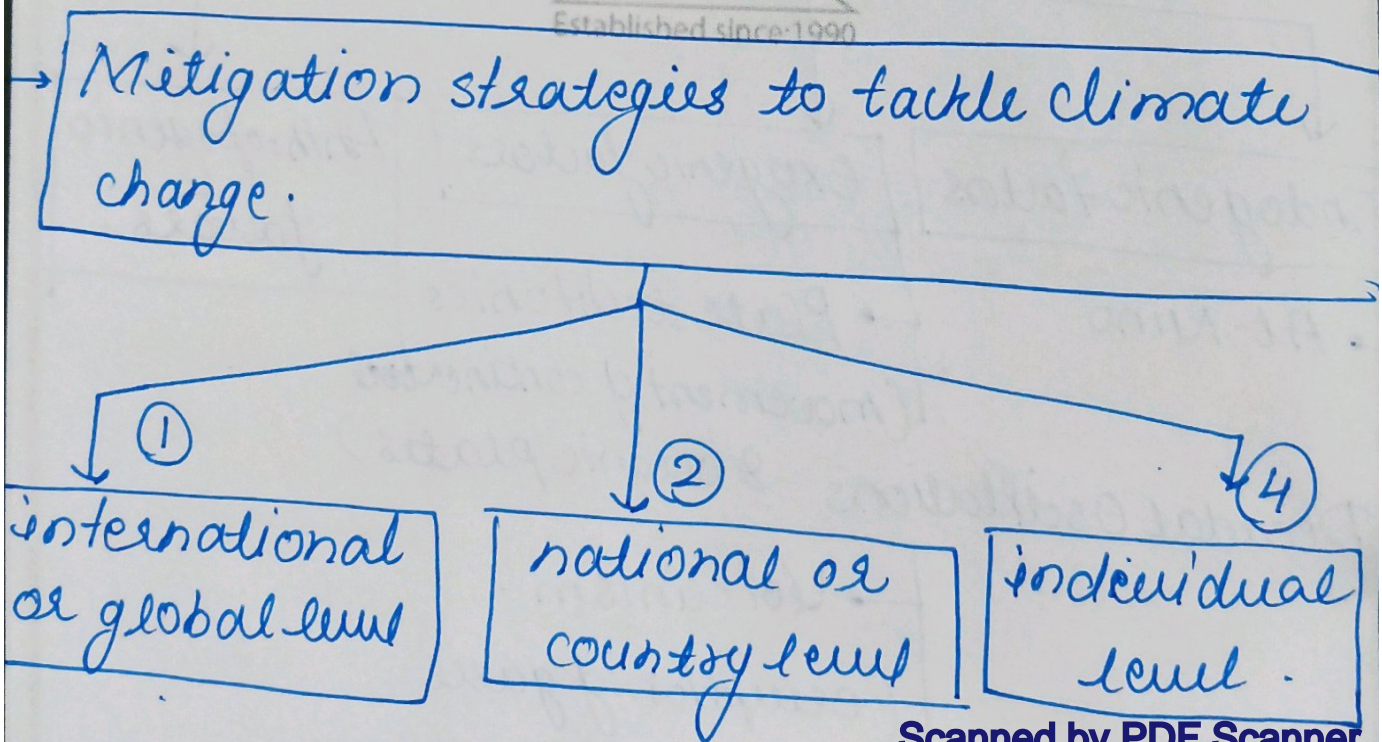 Established since:1990
Mitigation strategies to tackle climate
change.
1
2
4
international
or global level
national or
country level
individual
level.
Scanned by PDF Scanner